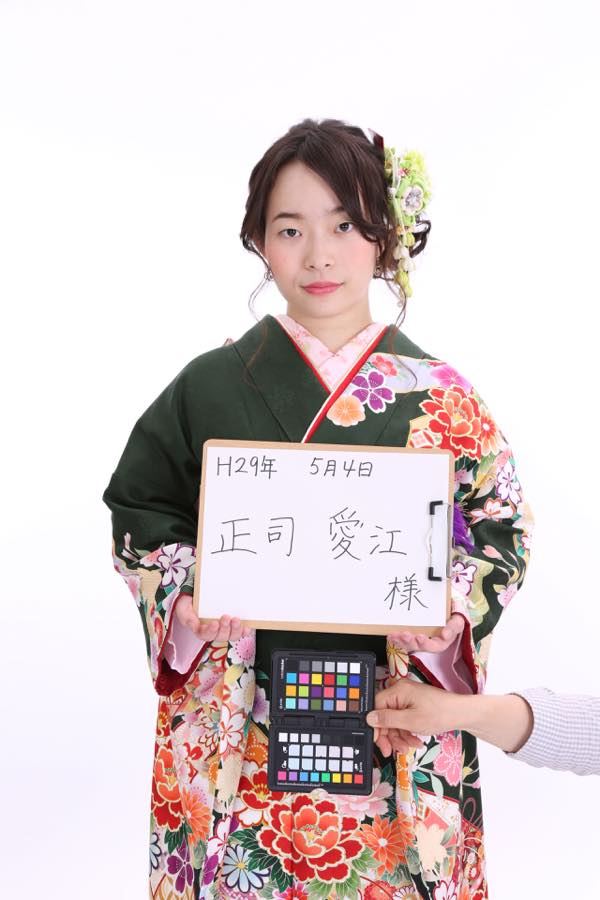 H29年 5月4日
正司 愛江
様